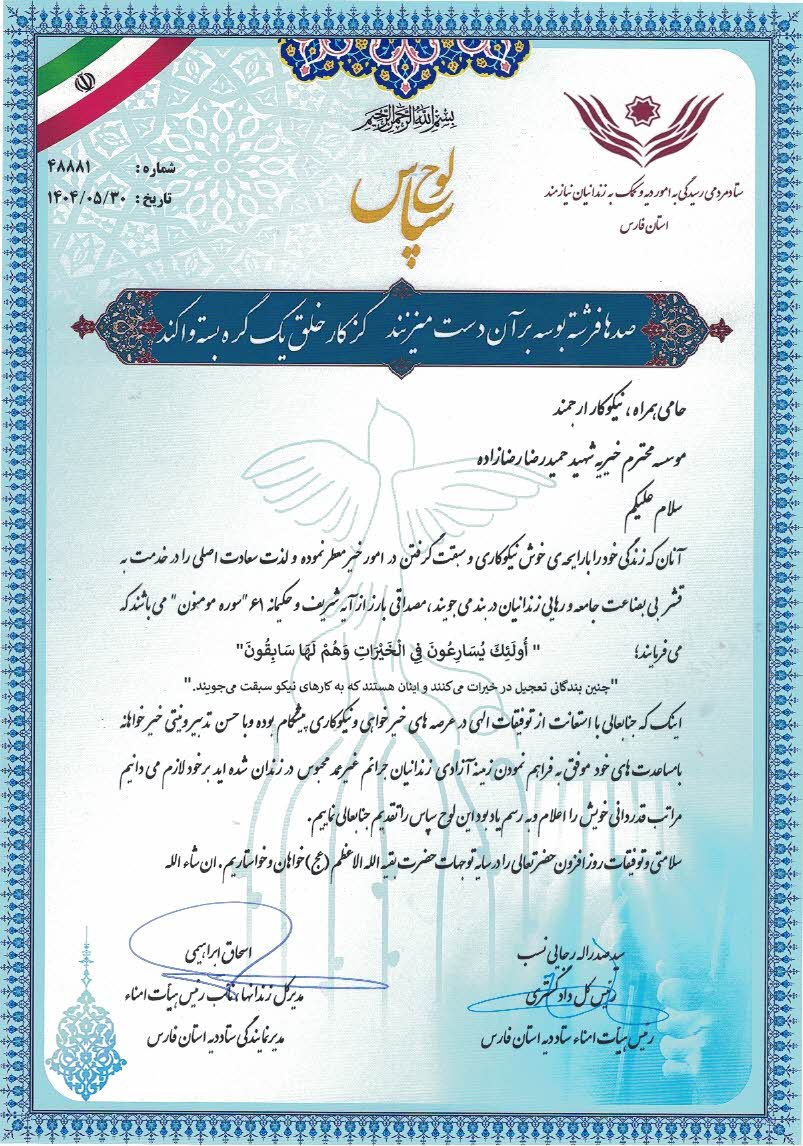 بسم الله الرحمن الرحیم
ستاد مردمی رسیدگی به امور دیه و کمک به زندانیان نیازمند
استان فارس
شماره : ۴۸۸۸۱
تاریخ : ۱۴۰۴/۰۵/۳۰
لوح سپاس
صدها فرشته بوسه بر آن دست میزنند کز کار خلق یک گره بسته وا کند
حامی همراه ، نیکوکار ارجمند
موسسه محترم خیریه شهید حمیدرضا رضازاده
سلام علیکم
آنان که زندگی خود را با رایحه ی خوش نیکوکاری و سبقت گرفتن در امور خیر معطر نموده و لذت سعادت اصلی را در خدمت به
قشر بی بضاعت جامعه و رهایی زندانیان در بند می جویند ، مصداقی بارز از آیه شریف و حکیمانه ۶۱ "سوره مومنون" می باشند که
می فرمایند؛ " أُولَئِكَ يُسَارِعُونَ فِي الْخَيْرَاتِ وَهُمْ لَهَا سَابِقُونَ"
"چنین بندگانی تعجیل در خیرات می‌کنند و اینان هستند که به کارهای نیکو سبقت می‌جویند."
اینک که جنابعالی با استعانت از توفیقات الهی در عرصه های خیرخواهی و نیکوکاری پیشگام بوده و با حسن تدبیر و نیتی خیرخواهانه
با مساعدت های خود موفق به فراهم نمودن زمینه آزادی زندانیان جرائم غیر عمد محبوس در زندان شده اید بر خود لازم می دانیم
مراتب قدردانی خویش را اعلام و به رسم یادبود این لوح سپاس را تقدیم جنابعالی نماییم.
سلامتی و توفیقات روز افزون حضرتعالی را در سایه توجهات حضرت بقیه الله الاعظم (عج) خواهان و خواستاریم . ان شاء الله
سید صدراله رجایی نسب
رئیس کل دادگستری
رئیس هیأت امناء ستاد دیه استان فارس
اسحاق ابراهیمی
مدیرکل زندانها ، نائب رئیس هیأت امناء
مدیر نمایندگی ستاد دیه استان فارس